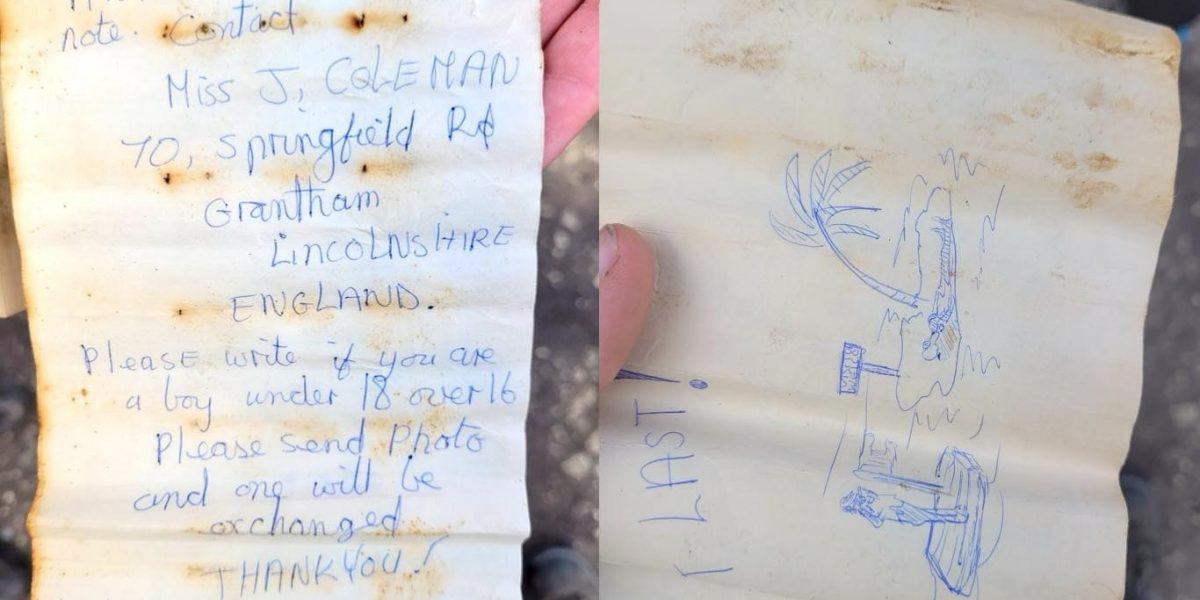 note. Contact
Miss J, COLEMAN
70, Springfield Rd
Grantham
LINCOLNSHIRE
ENGLAND.
Please write if you are
a boy under 18 over 16
Please send Photo
and one will be
exchanged
THANKYOU!
LAST!